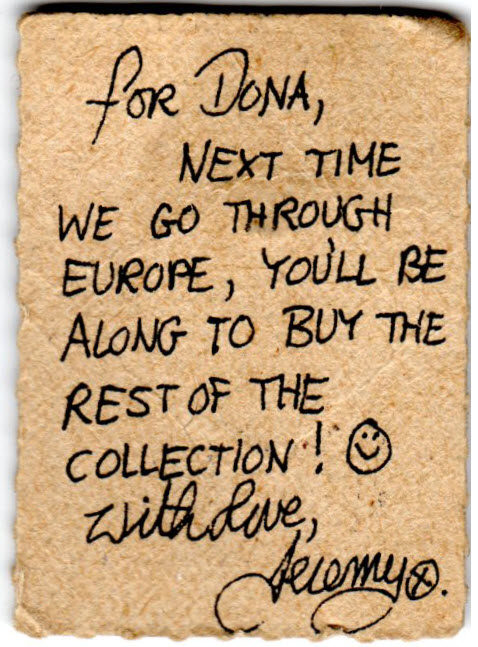 for DONA,
NEXT TIME
WE GO THROUGH
EUROPE, YOU'LL BE
ALONG TO BUY THE
REST OF THE
COLLECTION! ☺
With love,
Jeremy ⓧ.